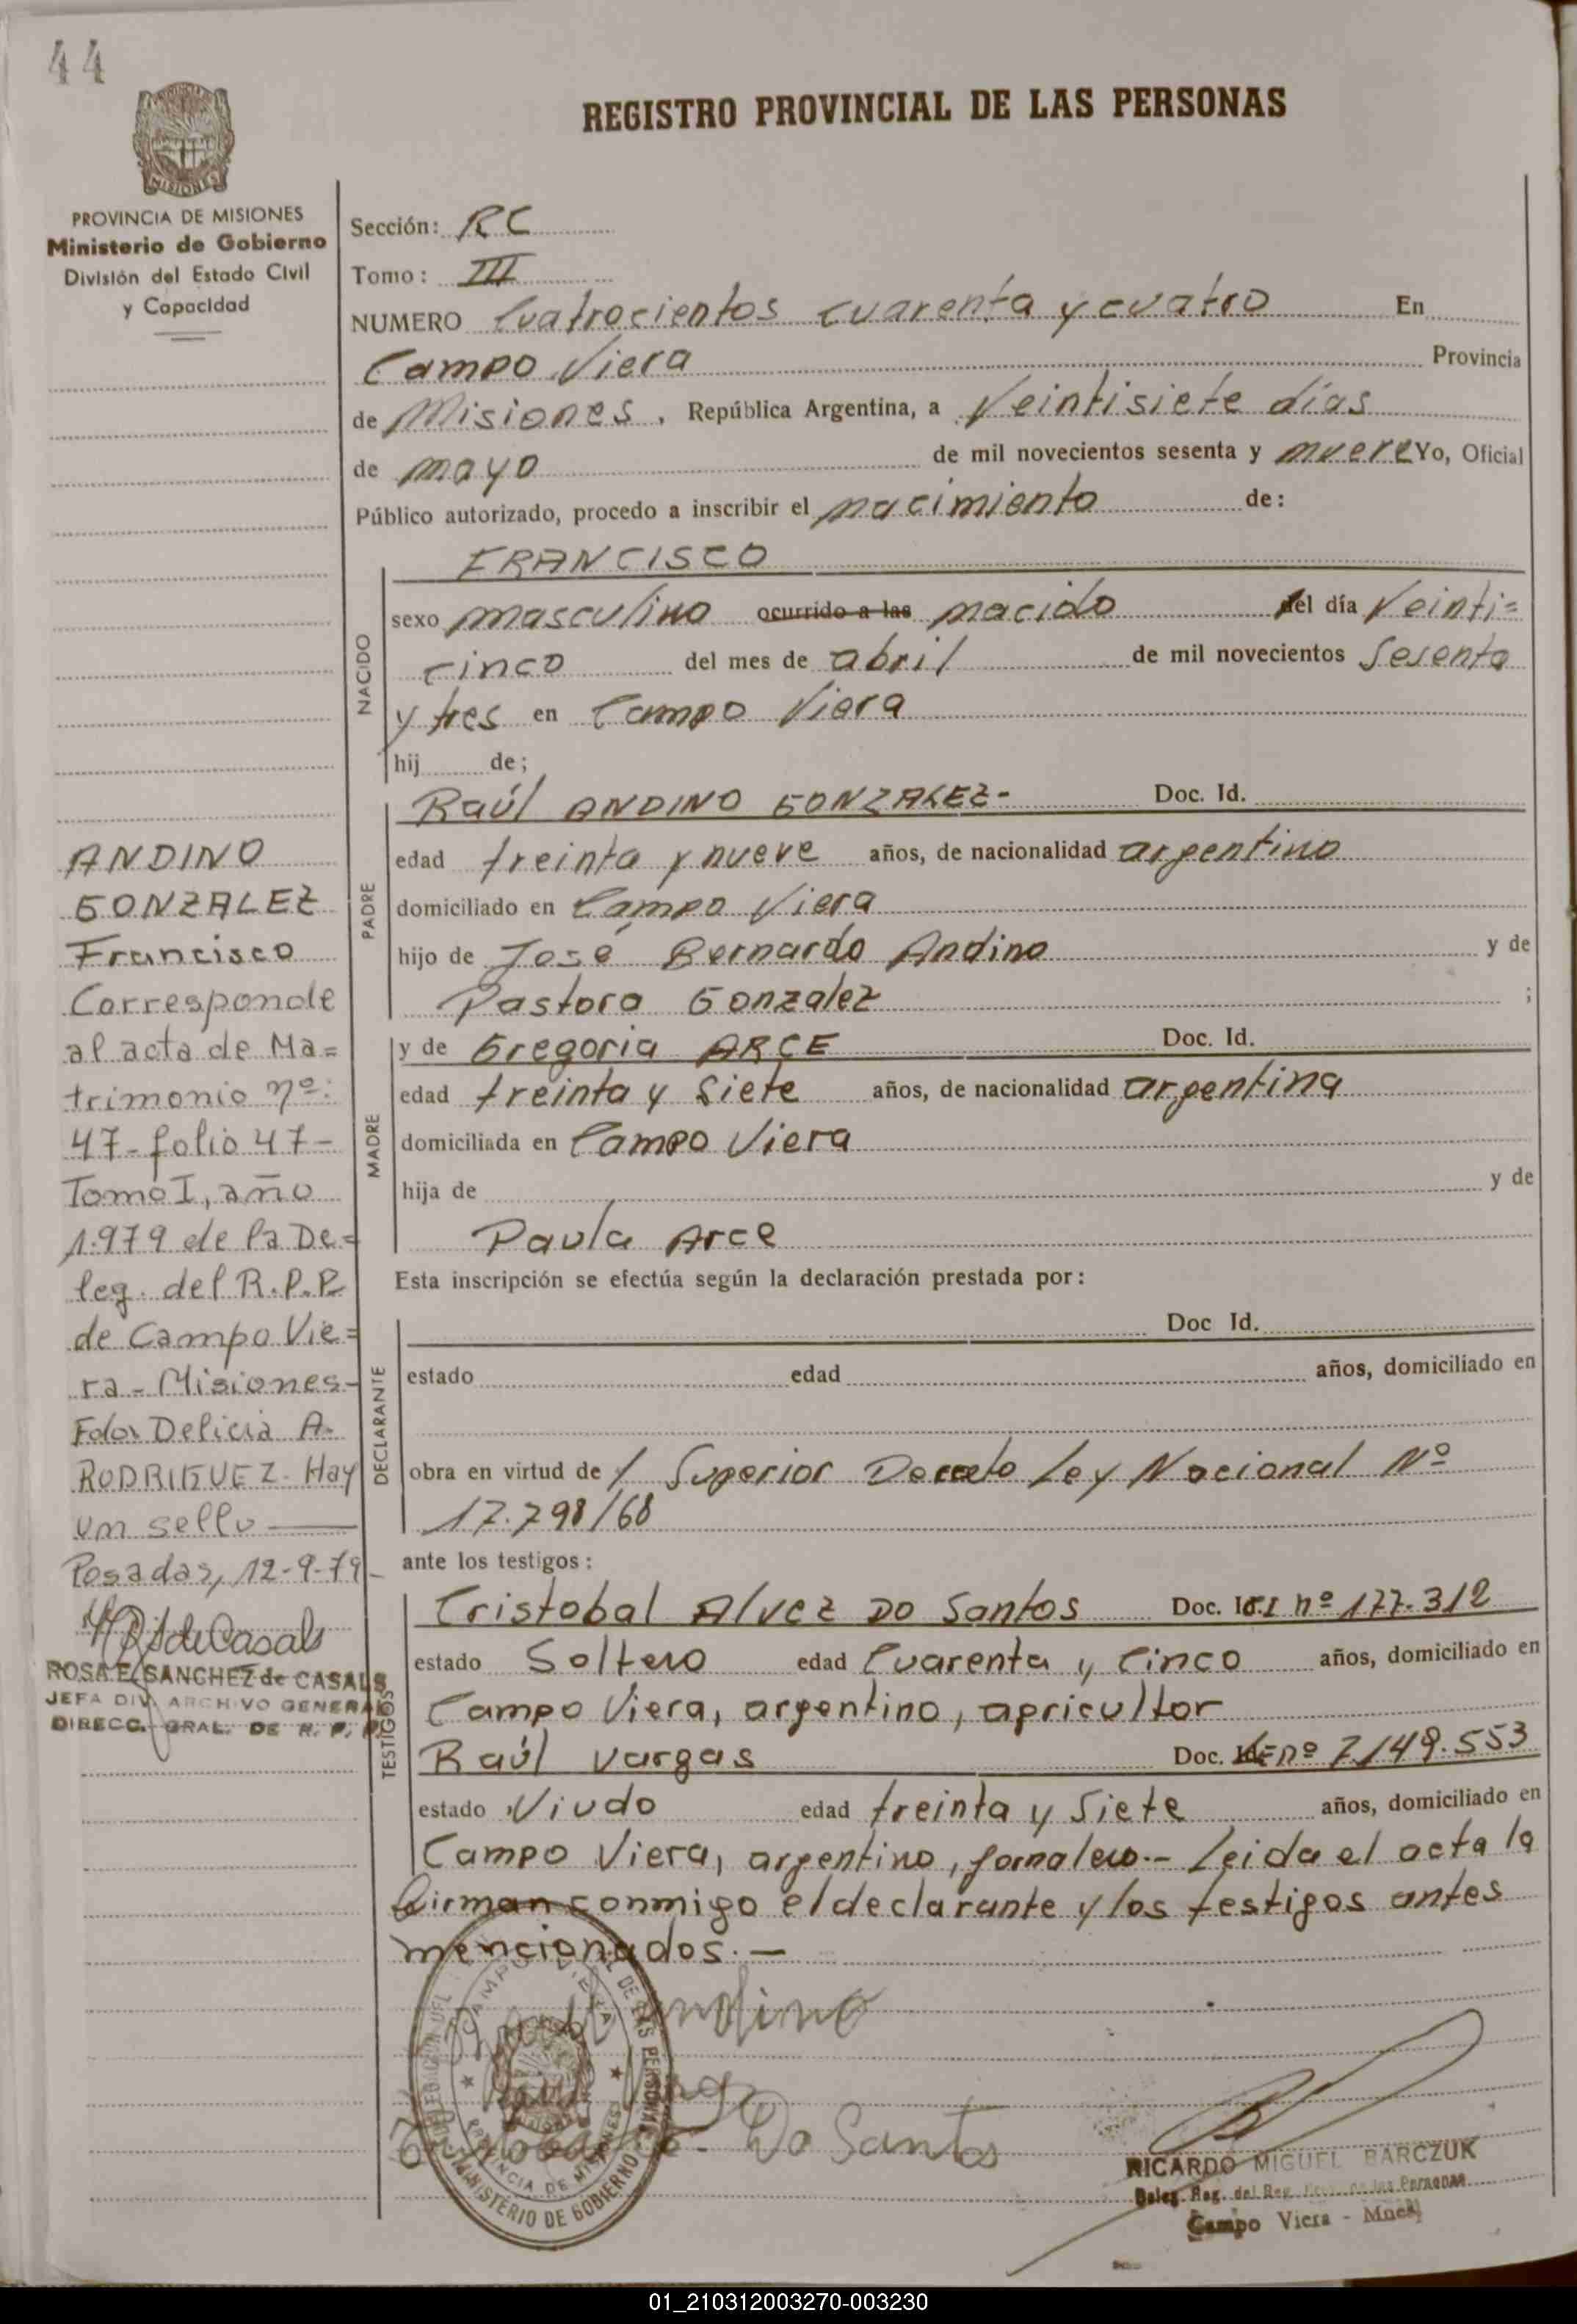 44
REGISTRO PROVINCIAL DE LAS PERSONAS
PROVINCIA DE MISIONES
Ministerio de Gobierno
División del Estado Civil
y Capacidad
ANDINO
GONZALEZ
Francisco
Corresponde
al acta de Ma=
trimonio nº:
47-folio 47-
Tomo I, año
1.979 de la De=
leg. del R.P.P.
de Campo Vie=
ra - Misiones-
Fdo. Delicia A.
RODRIGUEZ. Hay
un sello
Posadas, 12-9-79-
ROSA E. SANCHEZ de CASALS
JEFA DIV. ARCHIVO GENERAL
DIRECC. GRAL. DE R. P. P.
Sección: RC
Tomo: III
NUMERO Cuatrocientos cuarenta y cuatro En
Campo Viera Provincia
de Misiones, República Argentina, a Veintisiete días
de mayo de mil novecientos sesenta y nueve Yo, Oficial
Público autorizado, procedo a inscribir el nacimiento de:
FRANCISCO
NACIDO
sexo masculino ocurrido a las nacido del día Veinti=
cinco del mes de abril de mil novecientos Sesenta
y tres en Campo Viera
hij de;
PADRE
Raúl ANDINO GONZALEZ- Doc. Id.
edad treinta y nueve años, de nacionalidad argentino
domiciliado en Campo Viera
hijo de José Bernardo Andino y de
Pastora Gonzalez ;
MADRE
y de Gregoria ARCE Doc. Id.
edad treinta y Siete años, de nacionalidad argentina
domiciliada en Campo Viera
hija de y de
Paula Arce
Esta inscripción se efectúa según la declaración prestada por:
DECLARANTE
Doc Id.
estado edad años, domiciliado en
obra en virtud de / Superior Decreto Ley Nacional Nº
17.798/68
ante los testigos:
TESTIGOS
Cristobal Alvez DO Santos Doc. Id. C.I nº 177.312
estado Soltero edad Cuarenta y Cinco años, domiciliado en
Campo Viera, argentino, agricultor
Raúl Vargas Doc. Id. L.E nº 7.149.553
estado Viudo edad treinta y Siete años, domiciliado en
Campo Viera, argentino, jornalero.- Leida el acta la
firman conmigo el declarante y los testigos antes
mencionados.-
Andino
Do Santos
CAMPO VIERA
PROVINCIA DE MISIONES
MINISTERIO DE GOBIERNO
RICARDO MIGUEL BARCZUK
Campo Viera - Mnes
01_210312003270-003230